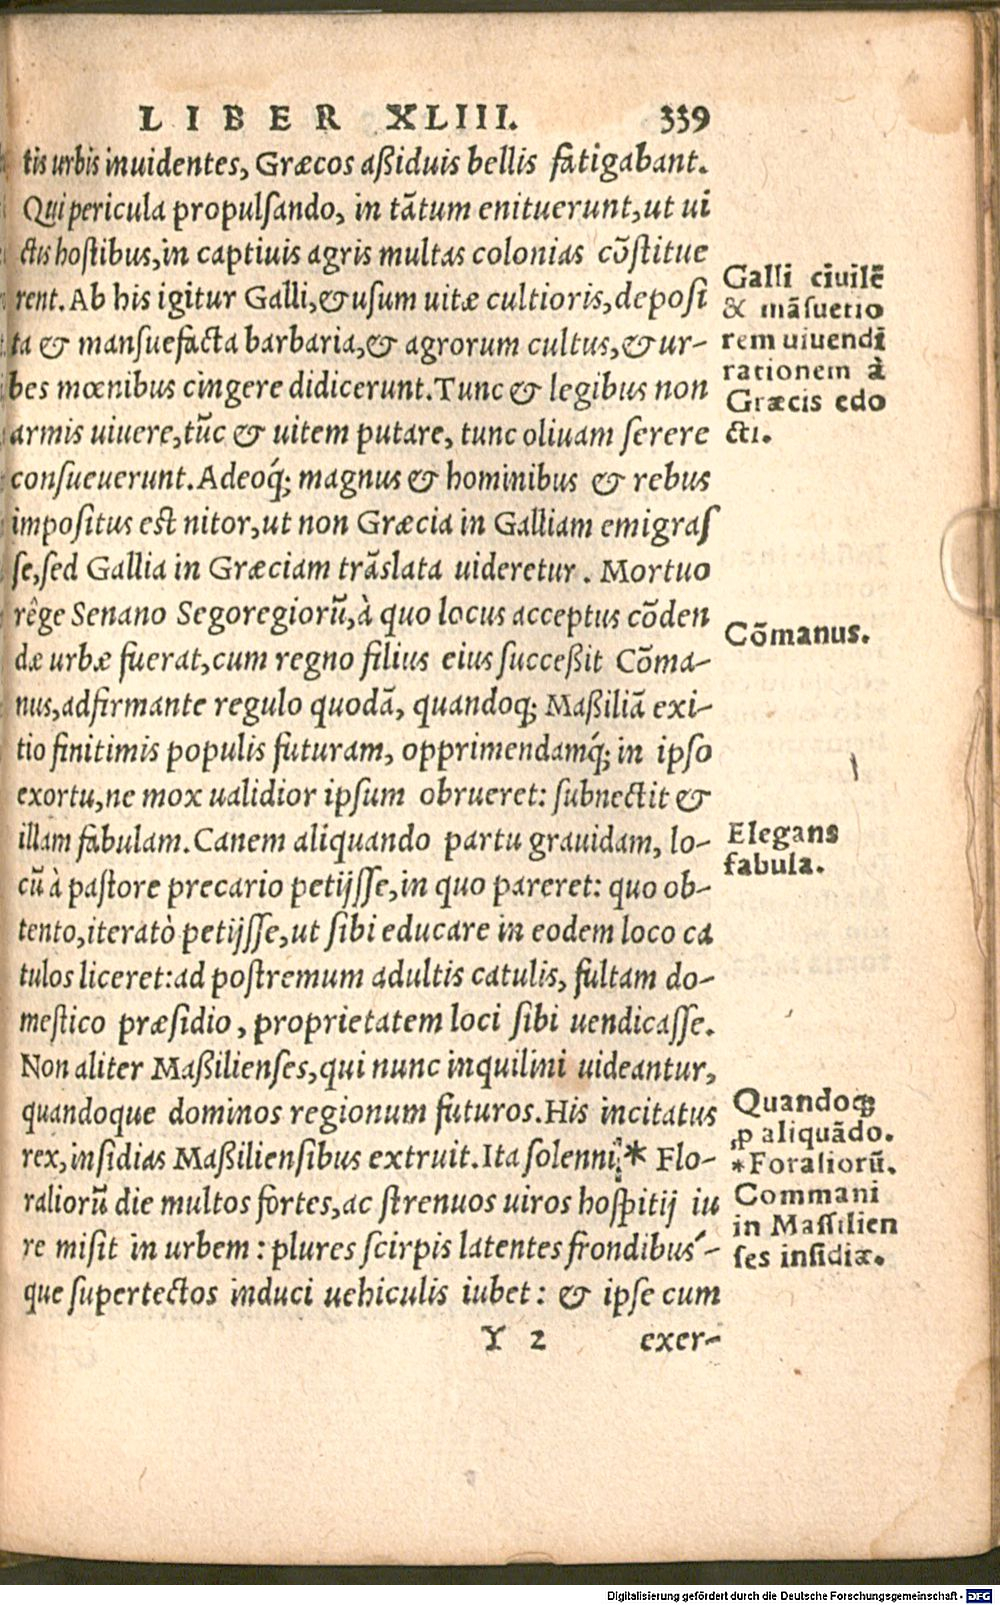 LIBER XLIII. 339
tis urbis inuidentes, Græcos aßiduis bellis fatigabant.
Qui pericula propulsando, in tãtum enituerunt, ut ui
ctis hostibus, in captiuis agris multas colonias cõstitue
rent. Ab his igitur Galli, & usum uitæ cultioris, deposi
ta & mansuefacta barbaria, & agrorum cultus, & ur-
bes mœnibus cingere didicerunt. Tunc & legibus non
armis uiuere, tũc & uitem putare, tunc oliuam serere
consueuerunt. Adeoq́; magnus & hominibus & rebus
impositus est nitor, ut non Græcia in Galliam emigras
se, sed Gallia in Græciam trãslata uideretur. Mortuo
rêge Senano Segoregiorũ, à quo locus acceptus cõden
dæ urbæ fuerat, cum regno filius eius succeßit Cõma-
nus, adfirmante regulo quodã, quandoq; Maßiliã exi-
tio finitimis populis futuram, opprimendamq́; in ipso
exortu, ne mox ualidior ipsum obrueret: subnectit &
illam fabulam. Canem aliquando partu grauidam, lo-
cũ à pastore precario petijsse, in quo pareret: quo ob-
tento, iteratò petijsse, ut sibi educare in eodem loco ca
tulos liceret: ad postremum adultis catulis, fultam do-
mestico præsidio, proprietatem loci sibi uendicasse.
Non aliter Maßilienses, qui nunc inquilini uideantur,
quandoque dominos regionum futuros. His incitatus
rex, insidias Maßiliensibus extruit. Ita solenni * Flo-
raliorũ die multos fortes, ac strenuos uiros hospitij iu
re misit in urbem: plures scirpis latentes frondibus-
que supertectos induci uehiculis iubet: & ipse cum
Y 2 exer-
Galli ciuilẽ
& mãsuetio
rem uiuendĩ
rationem à
Græcis edo
cti.
Cõmanus.
Elegans
fabula.
Quandoq;
ꝓ aliquãdo.
*Foraliorũ.
Commani
in Massilien
ses insidiæ.
Digitalisierung gefördert durch die Deutsche Forschungsgemeinschaft - DFG